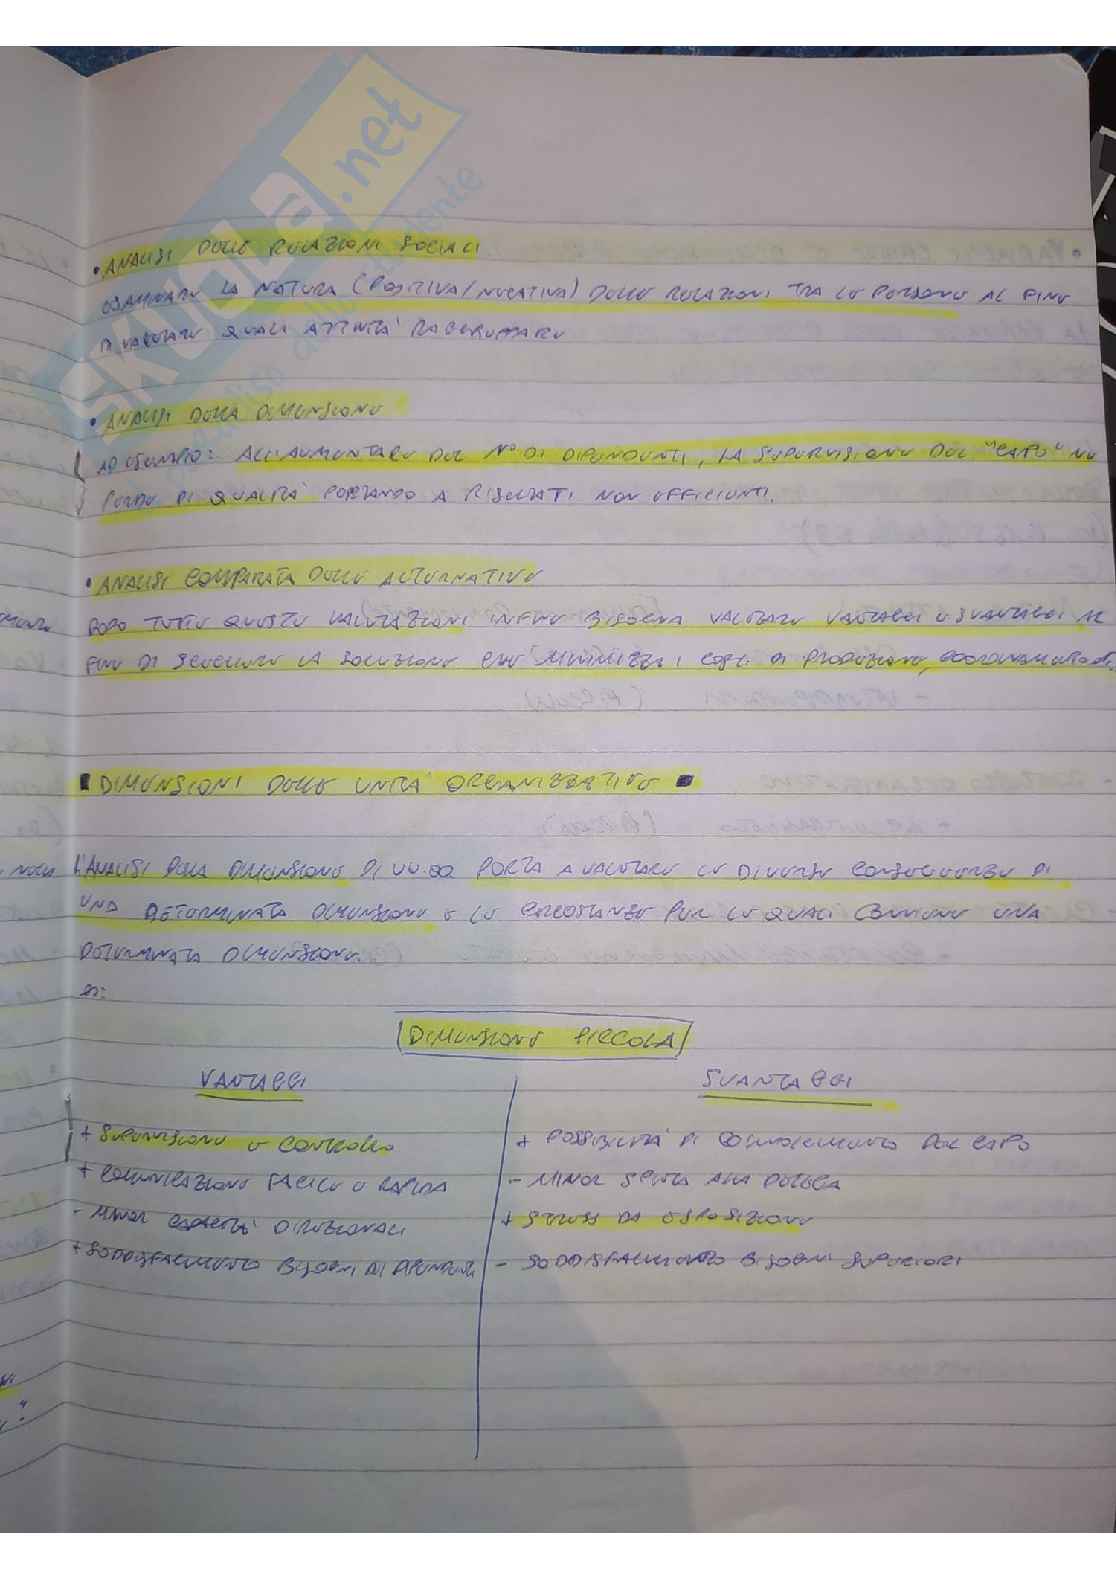 SKUOLA.net
• ANALISI DELLE RELAZIONI SOCIALI
ESAMINARE LA NATURA (POSITIVA/NEGATIVA) DELLE RELAZIONI TRA LE PERSONE AL FINE
DI VALUTARE QUALI ATTIVITÀ RAGGRUPPARE
• ANALISI DELLA DIMENSIONE
AD ESEMPIO: ALL'AUMENTARE DEL N° DI DIPENDENTI, LA SUPERVISIONE DEL "CAPO" NE
PERDE DI QUALITÀ PORTANDO A RISULTATI NON EFFICIENTI.
• ANALISI COMPARATA DELLE ALTERNATIVE
DOPO TUTTE QUESTE VALUTAZIONI INFINE BISOGNA VALUTARE VANTAGGI E SVANTAGGI AL
FINE DI SCEGLIERE LA SOLUZIONE CHE MINIMIZZI I COSTI DI PRODUZIONE, COORDINAMENTO
■ DIMENSIONI DELLE UNITÀ ORGANIZZATIVE ■
L'ANALISI DELLA DIMENSIONE DI UU.OO PORTA A VALUTARE LE DIVERSE CONSEGUENZE DI
UNA DETERMINATA DIMENSIONE E LE CIRCOSTANZE PER LE QUALI CONVIENE UNA
DETERMINATA DIMENSIONE.
ES:
DIMENSIONE PICCOLA
VANTAGGI
+ SUPERVISIONE E CONTROLLO
+ COMUNICAZIONE FACILE E RAPIDA
- MINOR CAPACITÀ DIREZIONALI
+ SODDISFACIMENTO BISOGNI DEI DIPENDENTI
SVANTAGGI
+ POSSIBILITÀ DI COINVOLGIMENTO DEL CAPO
- MINOR SPINTA ALLA DELEGA
+ STRESS DA ESPOSIZIONE
- SODDISFACIMENTO BISOGNI SUPERIORI